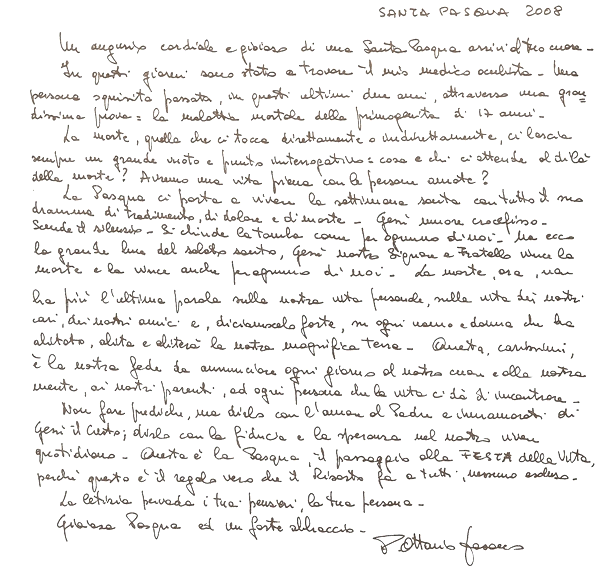 SANTA PASQUA 2008
Un augurio cordiale e gioioso di una Santa Pasqua arrivi al tuo cuore.
In questi giorni sono stato a trovare il mio medico oculista - Una
persona squisita passata, in questi ultimi due anni, attraverso una gran
dissima prova = la malattia mortale della primogenita di 17 anni.
La morte, quella che ci tocca direttamente o indirettamente, ci lascia
sempre un grande vuoto e punto interrogativo = cosa e chi ci attende al di là
della morte? Avremo una vita piena con le persone amate?
La Pasqua ci porta a vivere la settimana santa con tutto il suo
dramma di tradimento, di dolore e di morte - Gesù muore crocefisso -
Scende il silenzio - Si chiude la tomba come per ognuno di noi - Ma ecco
la grande luce del sabato santo, Gesù nostro Signore e Fratello vince la
morte e la vince anche per ognuno di noi - La morte, ora, non
ha più l'ultima parola sulla nostra vita personale, sulla vita dei nostri
cari, dei nostri amici e, diciamocelo forte, su ogni uomo e donna che ha
abitato, abita e abiterà la nostra magnifica terra - Questa, carissimi,
è la nostra fede da annunciare ogni giorno al nostro cuore e alla nostra
mente, ai nostri parenti, ad ogni persona che la vita ci dà di incontrare -
Non fare prediche, ma dirlo con l'amore al Padre e innamorati di
Gesù il Cristo; dirlo con la fiducia e la speranza nel nostro vivere
quotidiano - Questa è la Pasqua, il passaggio alla FESTA della Vita,
perché questo è il regalo vero che il Risorto fa a tutti, nessuno escluso.
La letizia pervada i tuoi pensieri, la tua persona -
Gioiosa Pasqua ed un forte abbraccio -
P. Ottavio